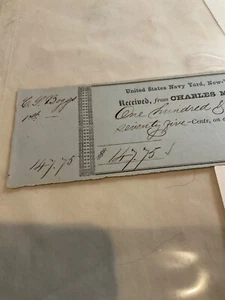 C. S. Boggs
147.75
United States Navy Yard, New-
Received, from CHARLES M
One hundred &
seventy five - Cents, on
$ 147.75